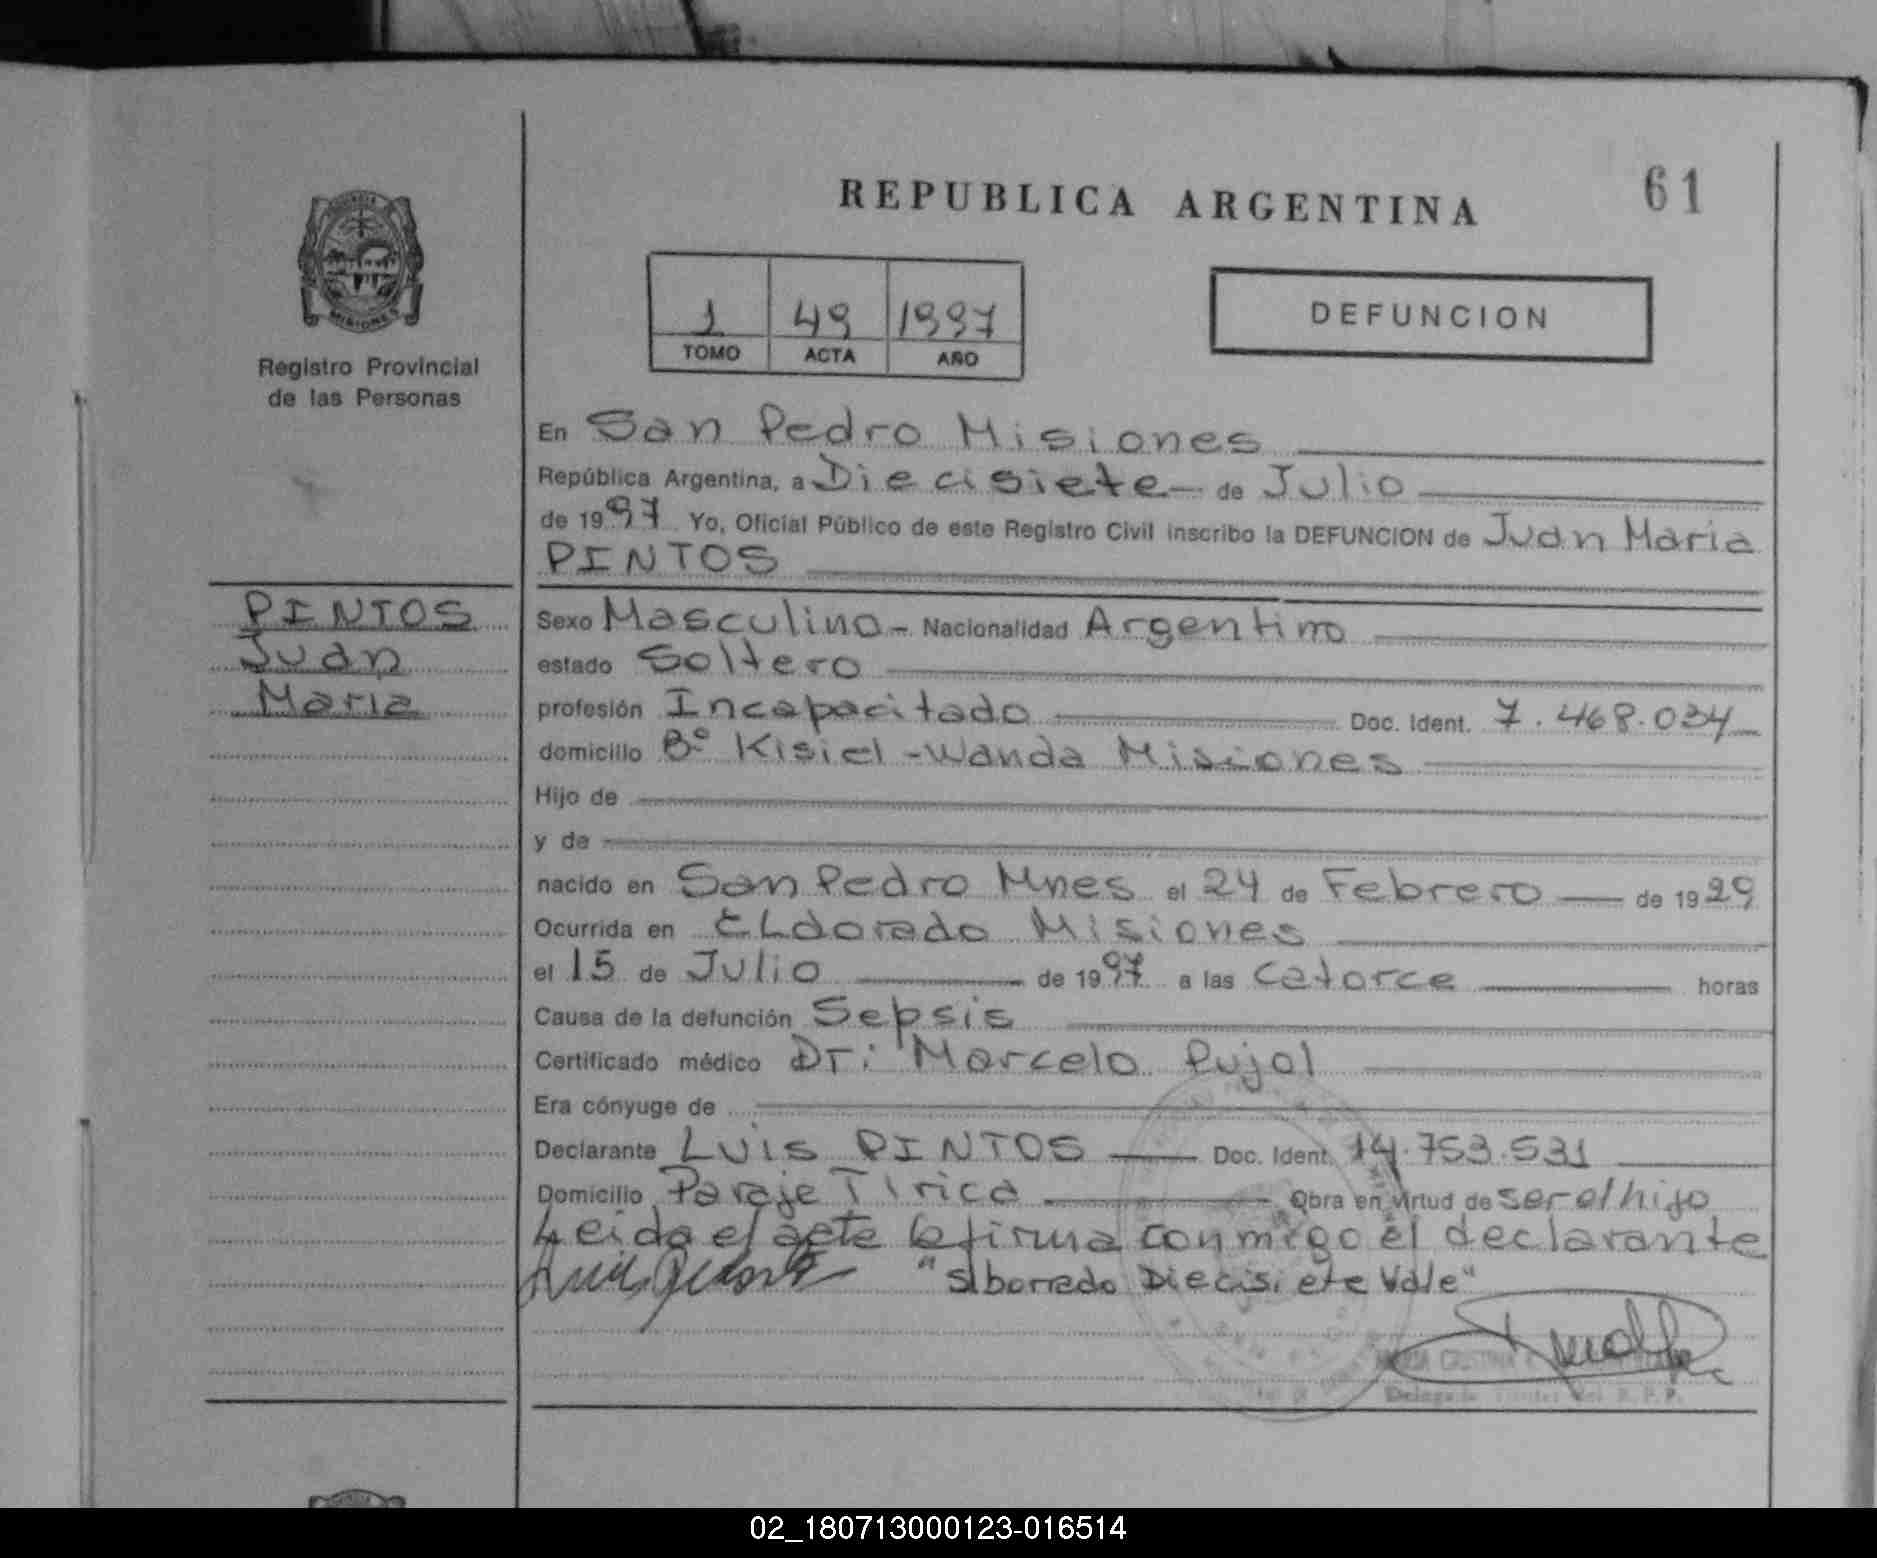 REPUBLICA ARGENTINA
61
MISIONES
Registro Provincial
de las Personas
1 49 1997
TOMO ACTA AÑO
DEFUNCION
PINTOS
Juan
Maria
En San Pedro Misiones
República Argentina, a Diecisiete de Julio
de 1997 Yo, Oficial Público de este Registro Civil inscribo la DEFUNCION de Juan Maria
PINTOS
Sexo Masculino - Nacionalidad Argentino
estado Soltero
profesión Incapacitado Doc. Ident. 7.468.034
domicilio Bº Kisiel - Wanda Misiones
Hijo de
y de
nacido en San Pedro Mnes el 24 de Febrero de 1929
Ocurrida en ELdorado Misiones
el 15 de Julio de 1997 a las catorce horas
Causa de la defunción Sepsis
Certificado médico Dr: Marcelo Pujol
Era cónyuge de
Declarante Luis PINTOS Doc. Ident. 14.753.531
Domicilio Paraje Tirica Obra en virtud de ser el hijo
Leida el acta la firma conmigo el declarante
"S/borrado Diecisiete Vale"
02_180713000123-016514